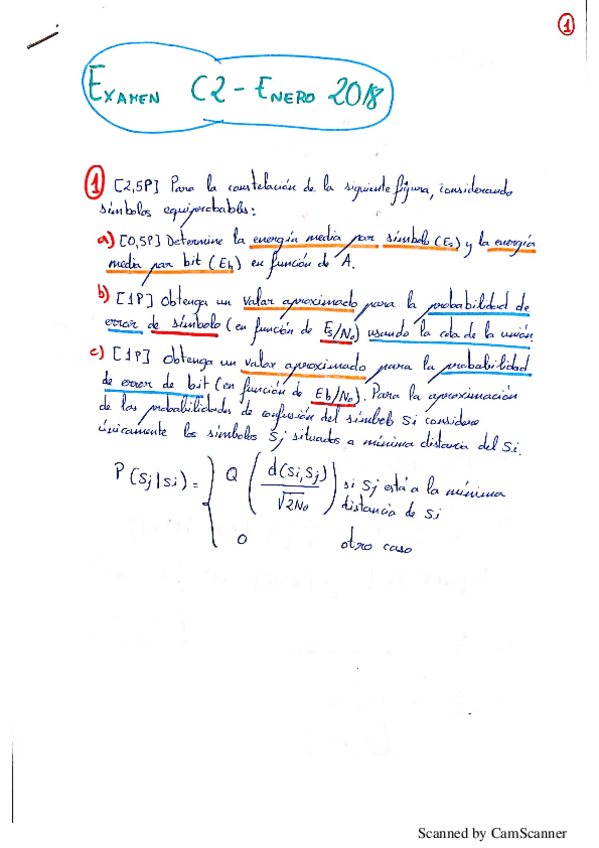 1
EXAMEN C2 - ENERO 2018
1 [2,5P] Para la constelación de la siguiente figura, considerando
símbolos equiprobables:
a) [0,5P] Determine la energía media por símbolo (Es) y la energía
media por bit (Eb) en función de A.
b) [1P] Obtenga un valor aproximado para la probabilidad de
error de símbolo (en función de Es/No) usando la cota de la unión.
c) [1P] Obtenga un valor aproximado para la probabilidad
de error de bit (en función de Eb/No). Para la aproximación
de las probabilidades de confusión del símbolo Si considere
únicamente los símbolos Sj situados a mínima distancia del Si.
P(Sj|Si) = { Q ( d(Si,Sj) / √2No ) si Sj está a la mínima
distancia de Si
0 otro caso
Scanned by CamScanner